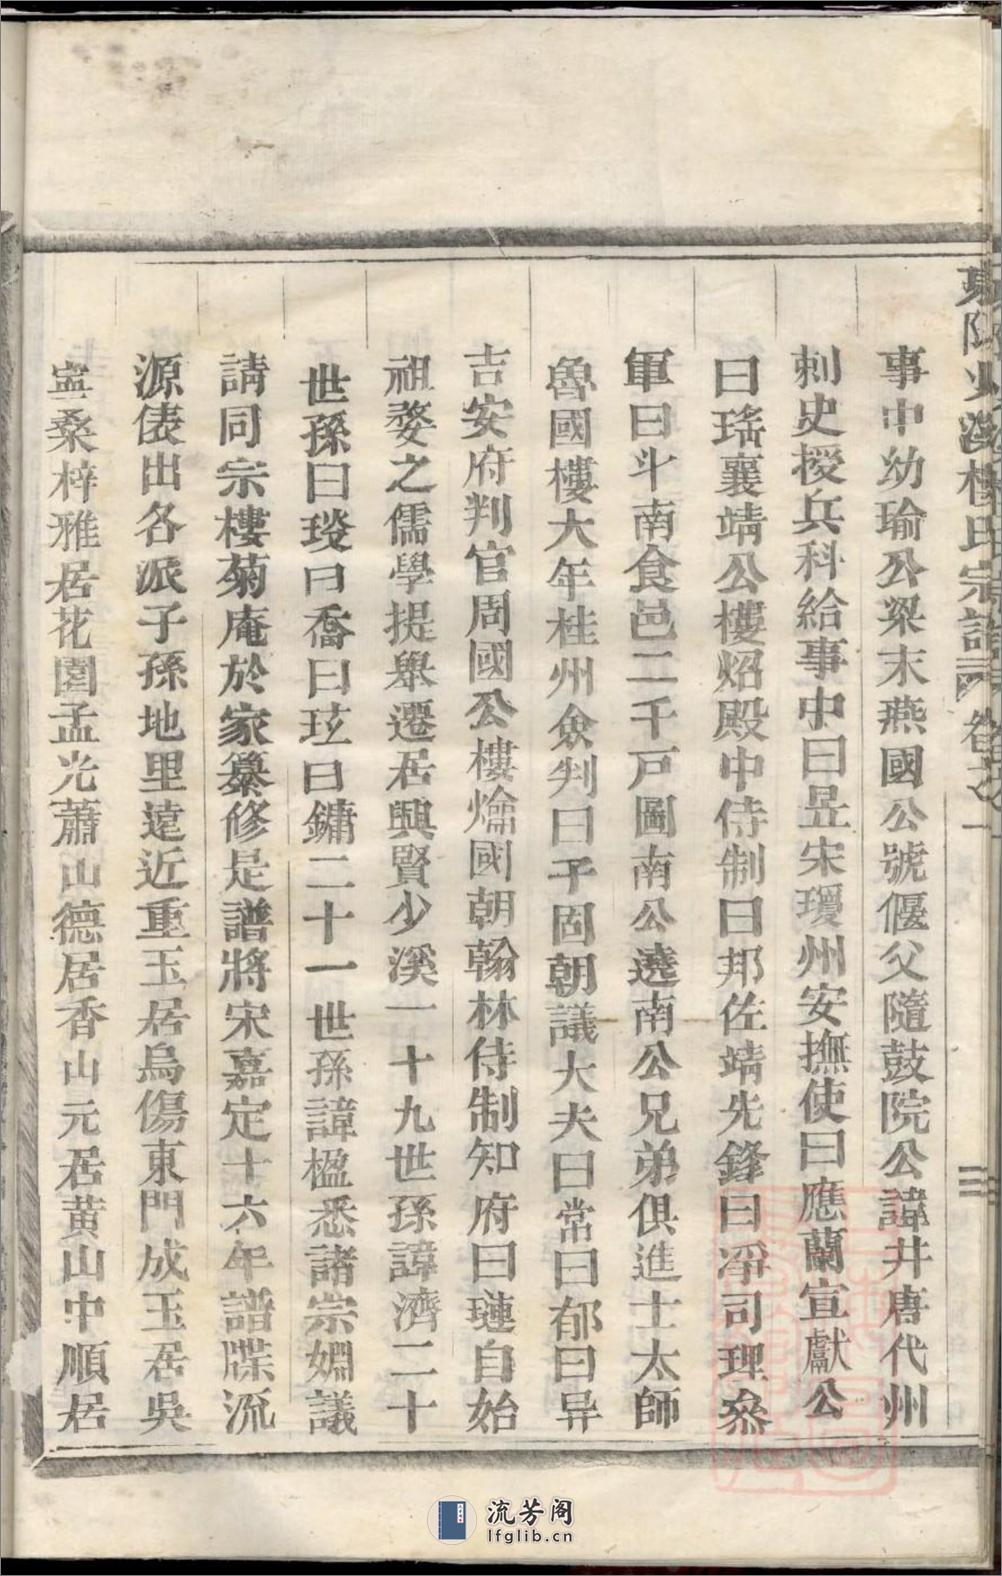 事中幼瑜公梁末燕國公號偃父隨鼓院公諱井唐代州
刺史授兵科給事中曰昱宋瓊州安撫使曰應蘭宣獻公
曰瑤襄靖公樓炤殿中侍制曰邦佐靖先鋒曰淨司理叅
軍曰斗南食邑二千戸圖南公遶南公兄弟俱進士太師
魯國樓大年桂州僉判曰子固朝議大夫曰常曰郁曰异
吉安府判官周國公樓爚國朝翰林侍制知府曰璉自始
祖婺之儒學提舉遷居興賢少溪一十九世孫諱濟二十
世孫曰琰曰喬曰玹曰鏞二十一世孫諱楹悉諸宗姻議
請同宗樓菊庵於家纂修是譜將宋嘉定十六年譜牒流
源俵出各派子孫地里遠近重玉居烏傷東門成玉居吳
寧桑梓雅居花園孟光蕭山德居香山元居黃山中順居
東陽少溪樓氏宗譜 卷之一
流芳阁
lfglib.cn